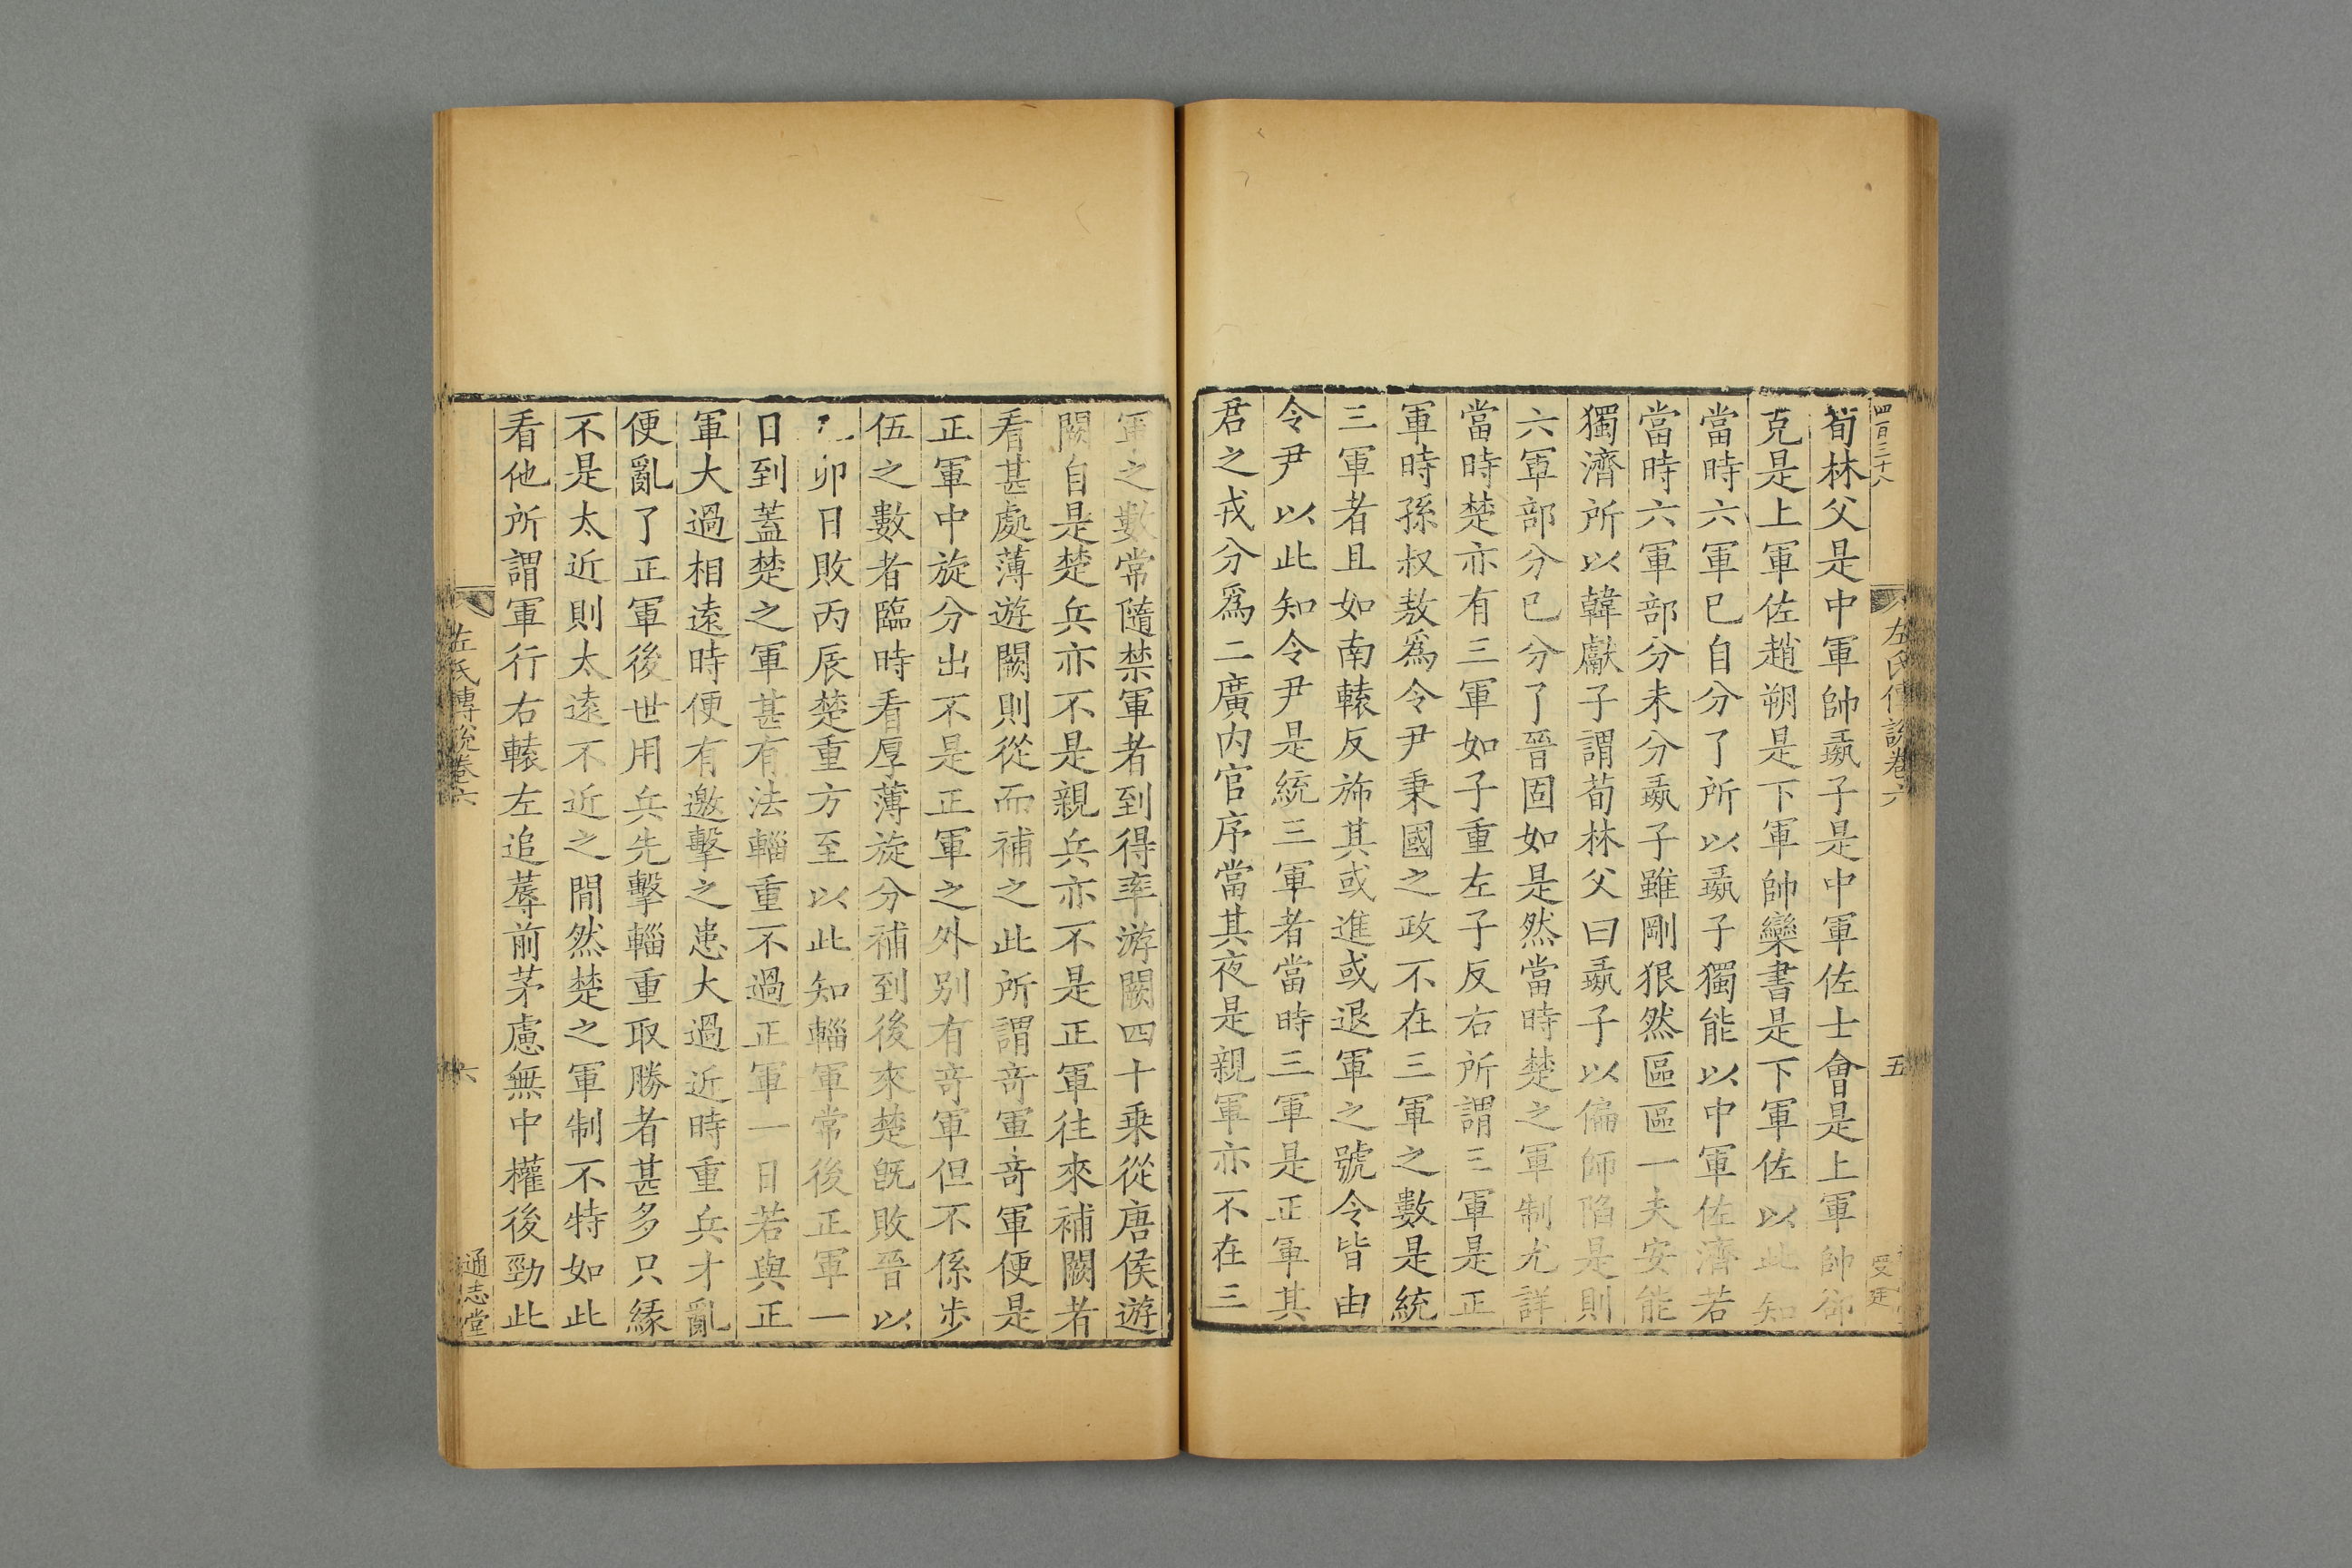 四百三十八
左氏傳說卷六
五
受廷
荀林父是中軍帥彘子是中軍佐士會是上軍帥郤
克是上軍佐趙朔是下軍帥欒書是下軍佐以此知
當時六軍已自分了所以彘子獨能以中軍佐濟若
當時六軍部分未分彘子雖剛狠然區區一夫安能
獨濟所以韓獻子謂荀林父曰彘子以偏師陷是則
六軍部分已分了晉固如是然當時楚之軍制尤詳
當時楚亦有三軍如子重左子反右所謂三軍是正
軍時孫叔敖爲令尹秉國之政不在三軍之數是統
三軍者且如南轅反斾其或進或退軍之號令皆由
令尹以此知令尹是統三軍者當時三軍是正軍其
君之戎分爲二廣內官序當其夜是親軍亦不在三
軍之數常隨禁軍者到得率游闕四十乗從唐侯遊
闕自是楚兵亦不是親兵亦不是正軍往來補闕者
看甚處薄遊闕則從而補之此所謂竒軍竒軍便是
正軍中旋分出不是正軍之外別有竒軍但不係步
伍之數者臨時看厚薄旋分補到後來楚旣敗晉以
卯日敗丙辰楚重方至以此知輜軍常後正軍一
日到蓋楚之軍甚有法輜重不過正軍一日若與正
軍大過相遠時便有邀擊之患大過近時重兵才亂
便亂了正軍後世用兵先擊輜重取勝者甚多只緣
不是太近則太遠不近之間然楚之軍制不特如此
看他所謂軍行右轅左追蓐前茅慮無中權後勁此
左氏傳說卷六
六
通志堂